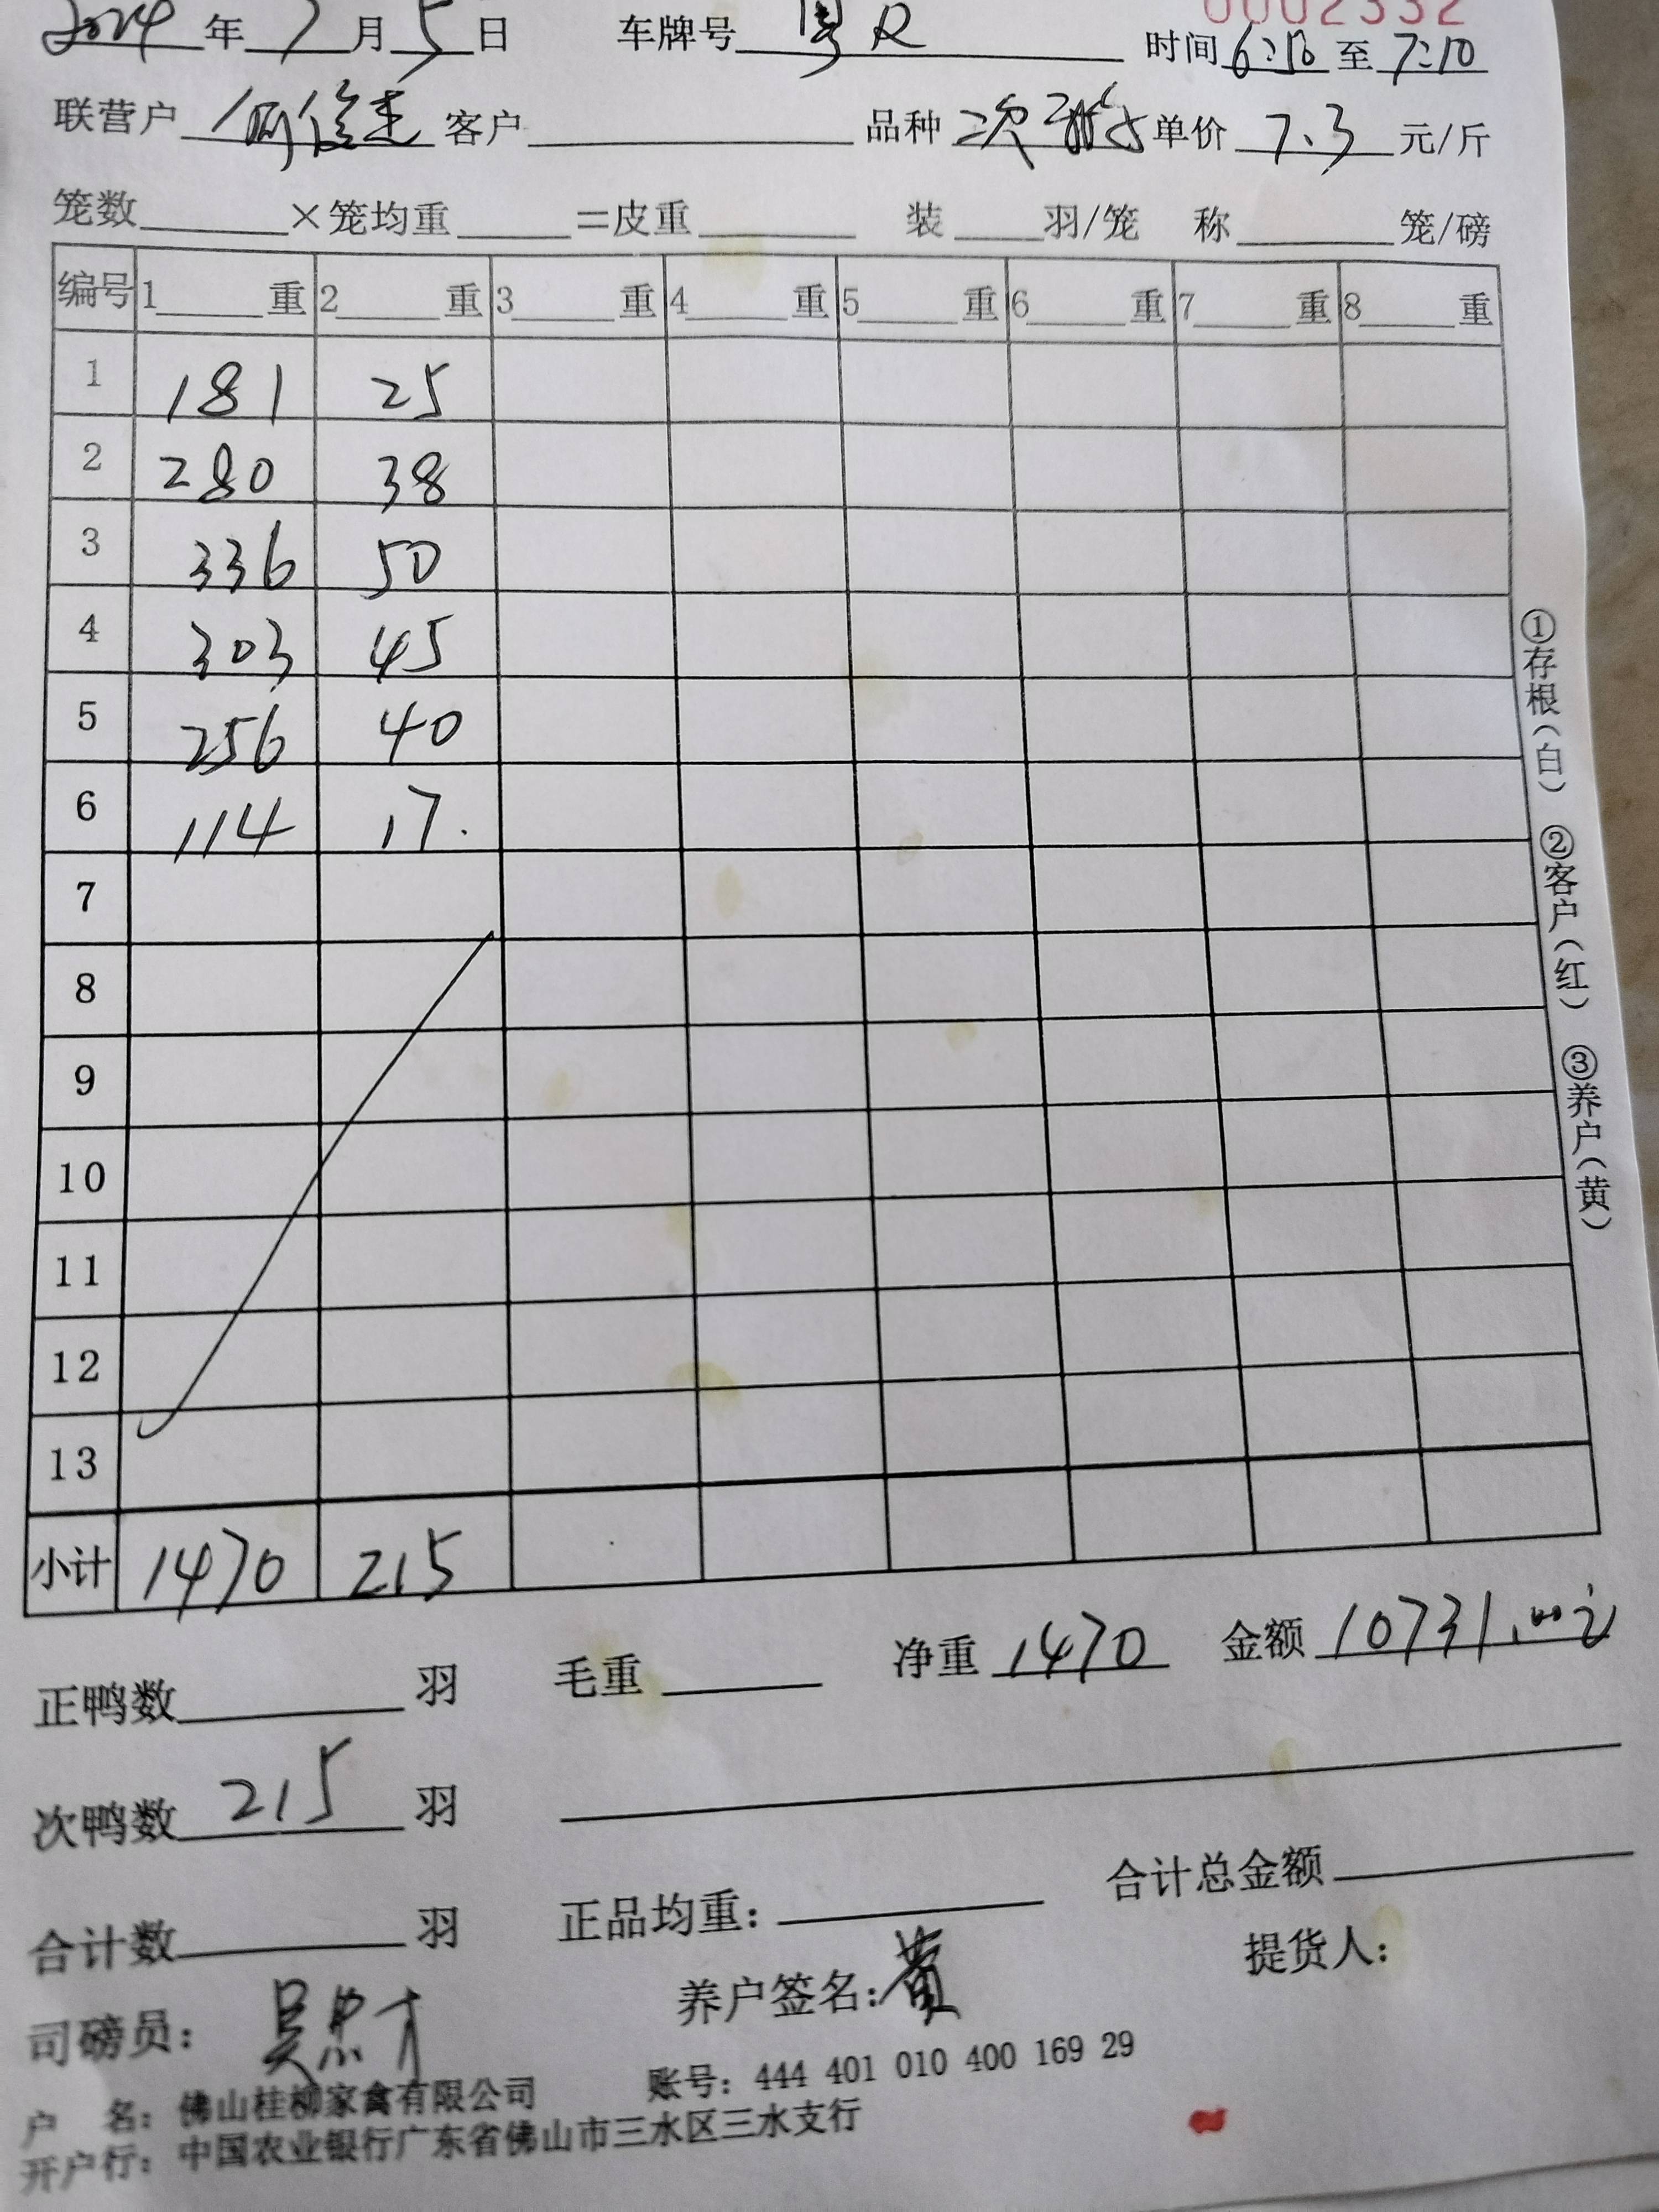 0002332
2024年7月5日 车牌号 粤R 时间 6:50 至 7:10
联营户 何俊杰 客户 品种 次鸭 单价 7.3 元/斤
笼数 ×笼均重 =皮重 装 羽/笼 称 笼/磅
编号 1 重 2 重 3 重 4 重 5 重 6 重 7 重 8 重
1 181 25
2 280 38
3 336 50
4 303 45
5 256 40
6 114 17.
7
8
9
10
11
12
13
小计 1470 215
①存根(白) ②客户(红) ③养户(黄)
正鸭数 羽 毛重 净重 1470 金额 10731.00元
次鸭数 215 羽
合计数 羽 正品均重: 合计总金额
司磅员: 吴思才 养户签名: 黄 提货人:
户 名: 佛山桂柳家禽有限公司 账号: 444 401 010 400 169 29
开户行: 中国农业银行广东省佛山市三水区三水支行